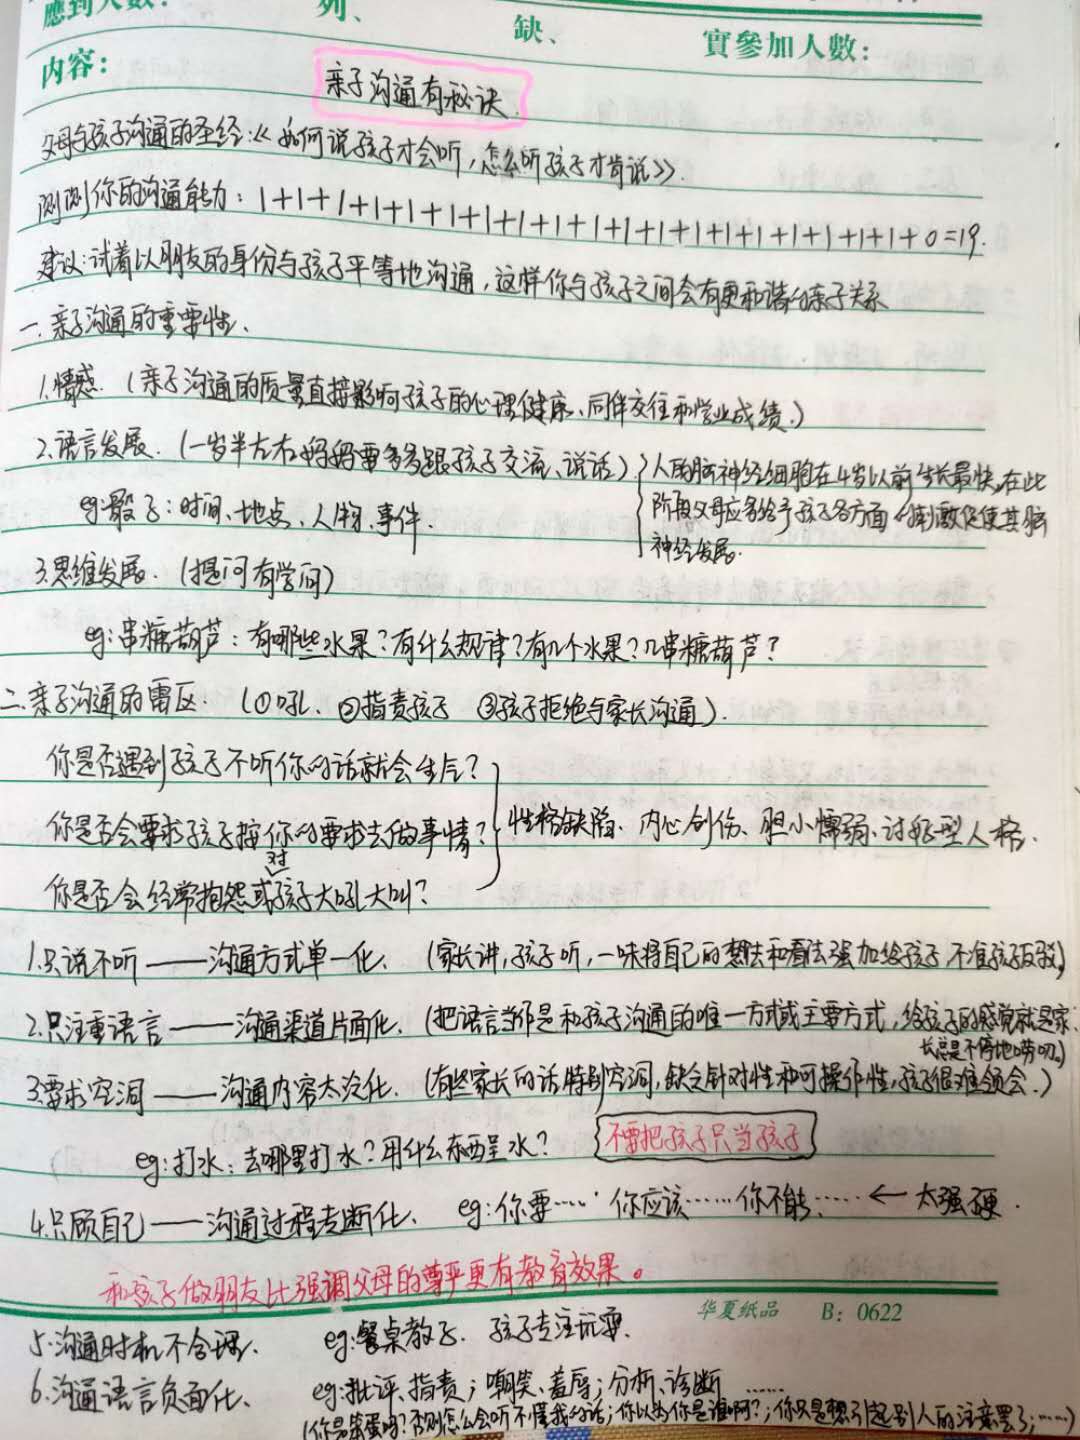 應到人數： 列、 缺、 實參加人數：
内容：
亲子沟通有秘诀.
父母与孩子沟通的圣经：《如何说孩子才会听，怎么听孩子才肯说》.
测测你的沟通能力：1+1+1+1+1+1+1+1+1+1+1+1+1+1+1+1+1+1+1+0=19.
建议：试着以朋友的身份与孩子平等地沟通，这样你与孩子之间会有更和谐的亲子关系
一. 亲子沟通的重要性、
1.情感.（亲子沟通的质量直接影响孩子的心理健康、同伴交往和学业成绩.）
2.语言发展.（一岁半左右妈妈要多多跟孩子交流、说话）
人的脑神经细胞在4岁以前生长最快,在此
阶段父母应多给予孩子各方面的刺激促使其脑
神经发展.
eg:骰子：时间、地点、人物、事件.
3.思维发展.（提问有学问）
eg:串糖葫芦：有哪些水果？有什么规律？有几个水果？几串糖葫芦？
二.亲子沟通的雷区.（①吼、②指责孩子 ③孩子拒绝与家长沟通）.
你是否遇到孩子不听你的话就会生气？
你是否会要求孩子按你的要求去做事情？
性格缺陷、内心创伤、胆小懦弱、讨好型人格.
你是否会经常抱怨或对孩子大吼大叫？
1.只说不听——沟通方式单一化、（家长讲,孩子听,一味将自己的想法和看法强加给孩子,不准孩子反驳）
2.只注重语言——沟通渠道片面化.（把语言当作是和孩子沟通的唯一方式或主要方式,给孩子的感觉就是家
长总是不停地唠叨.）
3.要求空洞——沟通内容太泛化.（有些家长的话特别空洞,缺乏针对性和可操作性,孩子很难领会.）
eg:打水：去哪里打水？用什么东西呈水？
不要把孩子只当孩子
4.只顾自己——沟通过程专断化、 eg:你要…… 你应该…… 你不能…… ← 太强硬.
和孩子做朋友比强调父母的尊严更有教育效果。
华夏纸品 B：0622
5.沟通时机不合理、 eg:餐桌教子. 孩子专注玩耍.
6.沟通语言负面化、 eg:批评、指责；嘲笑、羞辱；分析、诊断……
（你是笨蛋吗？否则怎么会听不懂我的话；你以为你是谁啊？；你只是想引起别人的注意罢了；……）